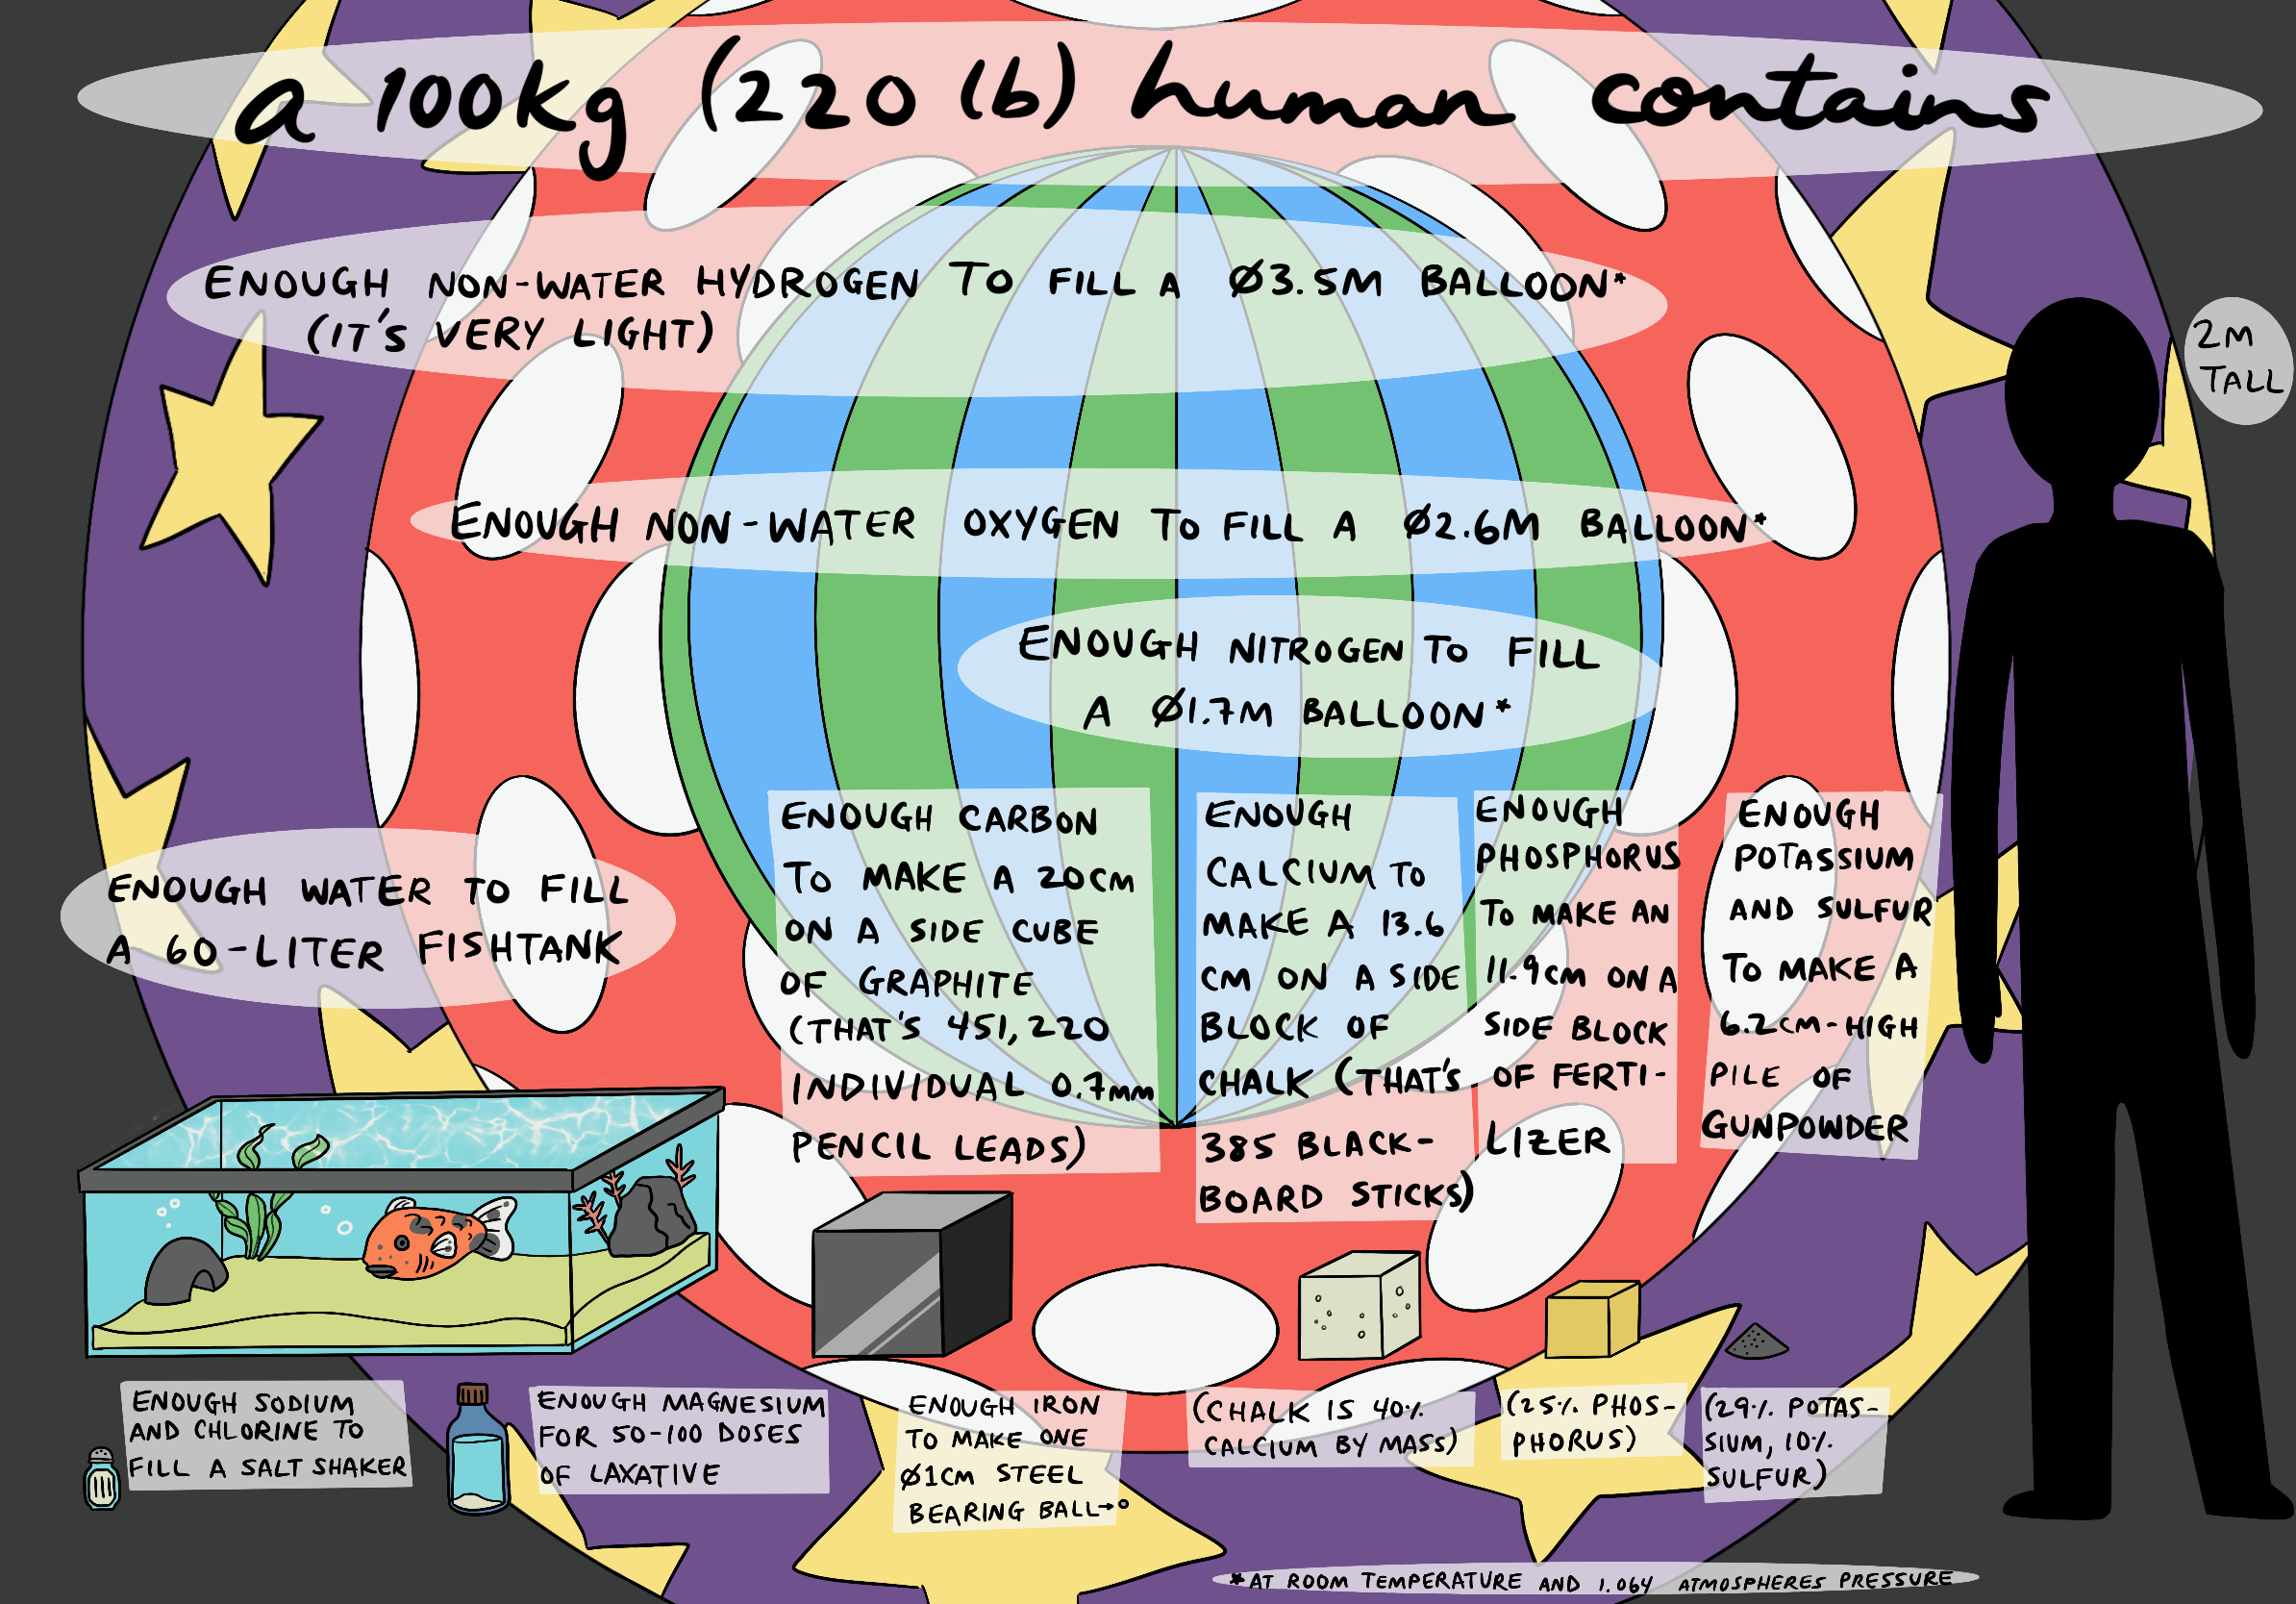 a 100kg (220 lb) human contains
ENOUGH NON-WATER HYDROGEN TO FILL A Ø3.5M BALLOON*
(IT'S VERY LIGHT)
2M
TALL
ENOUGH NON-WATER OXYGEN TO FILL A Ø2.6M BALLOON*
ENOUGH NITROGEN TO FILL
A Ø1.7M BALLOON*
ENOUGH WATER TO FILL
A 60-LITER FISHTANK
ENOUGH CARBON
TO MAKE A 20CM
ON A SIDE CUBE
OF GRAPHITE
(THAT'S 451,220
INDIVIDUAL 0.7mm
PENCIL LEADS)
ENOUGH
CALCIUM TO
MAKE A 13.6
CM ON A SIDE
BLOCK OF
CHALK (THAT'S
385 BLACK-
BOARD STICKS)
ENOUGH
PHOSPHORUS
TO MAKE AN
11.9CM ON A
SIDE BLOCK
OF FERTI-
LIZER
ENOUGH
POTASSIUM
AND SULFUR
TO MAKE A
6.2CM-HIGH
PILE OF
GUNPOWDER
ENOUGH SODIUM
AND CHLORINE TO
FILL A SALT SHAKER
ENOUGH MAGNESIUM
FOR 50-100 DOSES
OF LAXATIVE
ENOUGH IRON
TO MAKE ONE
Ø1CM STEEL
BEARING BALL→
(CHALK IS 40%
CALCIUM BY MASS)
(25% PHOS-
PHORUS)
(29% POTAS-
SIUM, 10%
SULFUR)
*AT ROOM TEMPERATURE AND 1.064 ATMOSPHERES PRESSURE